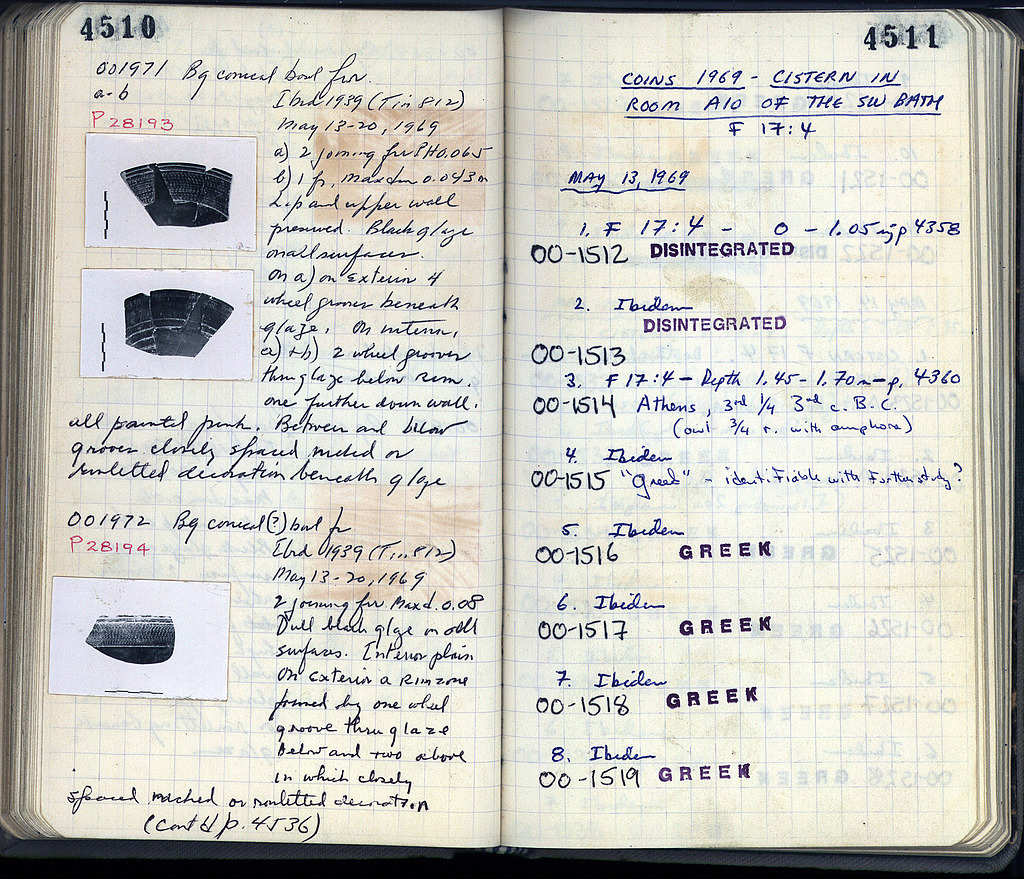 4510
001971 Bg conical bowl frr.
a-b
P28193
Ibid 1939 (Tin 812)
May 13-20, 1969
a) 2 joining frr PH 0.065
b) 1 fr, Max dim 0.043m
Lip and upper wall
preserved. Black glaze
on all surfaces.
On a) on Exterior 4
wheel grooves beneath
glaze. On interior,
a) + b) 2 wheel grooves
thru glaze below rim.
one further down wall.
all painted pink. Between and below
grooves closely spaced nicked or
rouletted decoration beneath glaze
001972 Bg conical (?) bowl fr
P28194
Ibid 1939 (Tin 812)
May 13-20, 1969
2 joining frr Max d. 0.08
Dull black glaze on all
surfaces. Interior plain
On exterior a Rim zone
formed by one wheel
groove thru glaze
below and two above
in which closely
spaced nicked or rouletted decoration
(Cont'd p. 4536)
4511
COINS 1969 - CISTERN IN
ROOM A10 OF THE SW BATH
F 17:4
MAY 13, 1969
1. F 17:4 - 0 - 1.05 m, p 4358
00-1512 DISINTEGRATED
2. Ibidem
DISINTEGRATED
00-1513
3. F 17:4 - Depth 1.45 - 1.70m - p. 4360
00-1514 Athens, 3rd 1/4 3rd c. B.C.
(owl 3/4 r. with amphora)
4. Ibidem
00-1515 "Greek" - identifiable with further study?
5. Ibidem
00-1516 GREEK
6. Ibidem
00-1517 GREEK
7. Ibidem
00-1518 GREEK
8. Ibidem
00-1519 GREEK